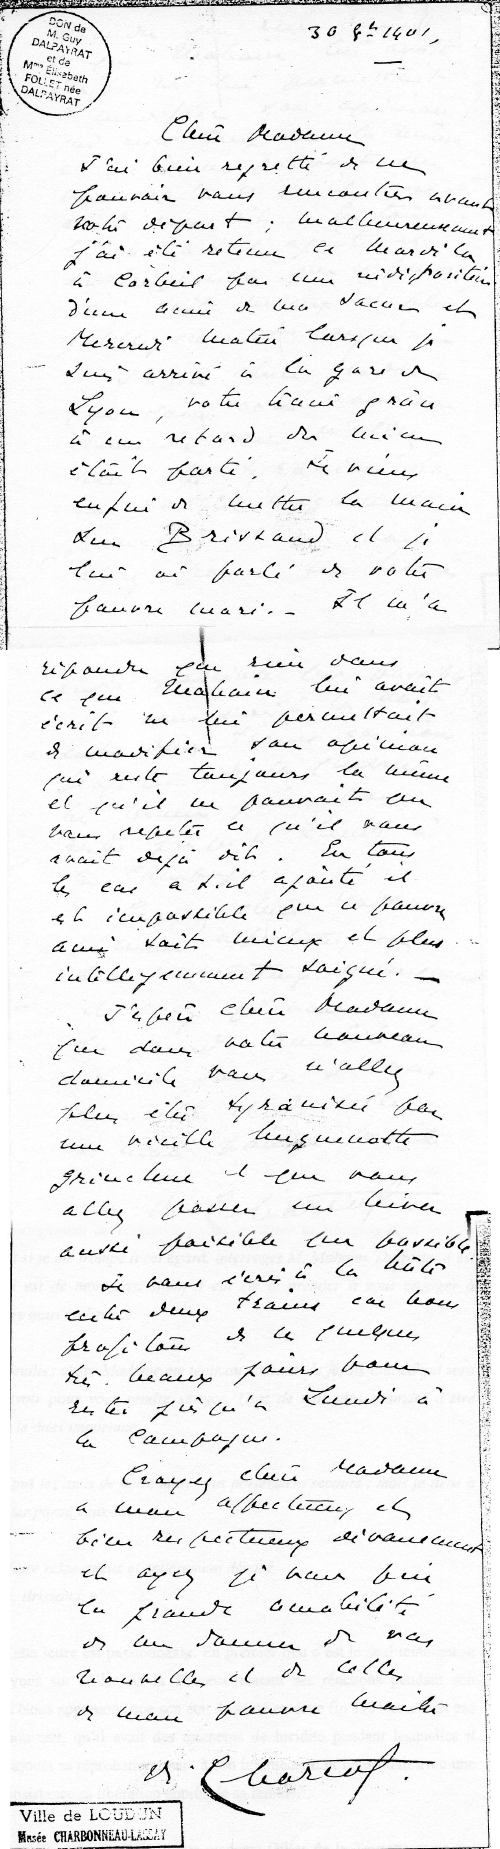 DON de
M. Guy
DALPAYRAT
et de
Mme Elisabeth
FOLLET née
DALPAYRAT
30 8bre 1901,
Chère Madame
J'ai bien regretté de ne
pouvoir vous rencontrer avant
votre départ ; malheureusement
j'ai été retenu ce Mardi là
à Corbeil par une indisposition
d'une amie de ma sœur et
Mercredi matin lorsque je
suis arrivé à la gare de
Lyon, votre train grâce
à un retard du mien
était parti. Je viens
enfin de mettre la main
sur Brissaud et je
lui ai parlé de votre
pauvre mari. – Il m'a
répondu que rien dans
ce que Mahaim lui avait
écrit ne lui permettait
de modifier son opinion
qui reste toujours la même
et qu'il ne pouvait que
vous répéter ce qu'il vous
avait déjà dit. En tous
les cas a t-il ajouté il
est impossible que ce pauvre
ami soit mieux et plus
intelligemment soigné. —
J'espère chère Madame
que dans votre nouveau
domicile vous n'allez
plus être tyrannisée par
une vieille huguenotte
grincheuse et que vous
allez passer un hiver
aussi paisible que possible.
Je vous écris à la hâte
entre deux trains car nous
profitons de ces quelques
très beaux jours pour
rester jusqu'à Lundi à
la Campagne.
Croyez chère Madame
à mon affectueux et
bien respectueux dévouement
et ayez je vous prie
la grande amabilité
de me donner de vos
nouvelles et de celles
de mon pauvre Maître
Dr. Charcot.
Ville de LOUDUN
Musée CHARBONNEAU-LASSAY